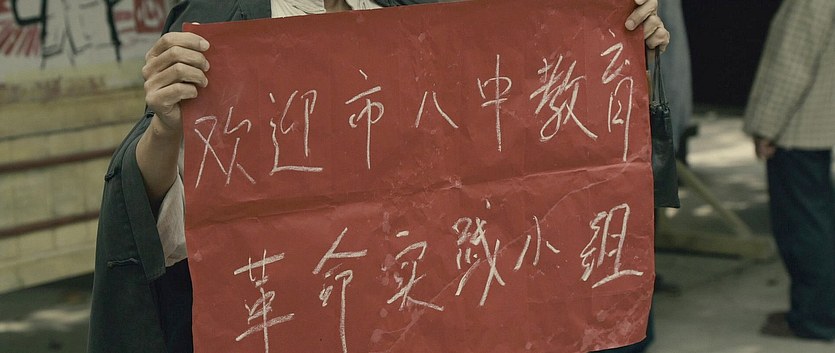 欢迎市八中教育
革命实践小组